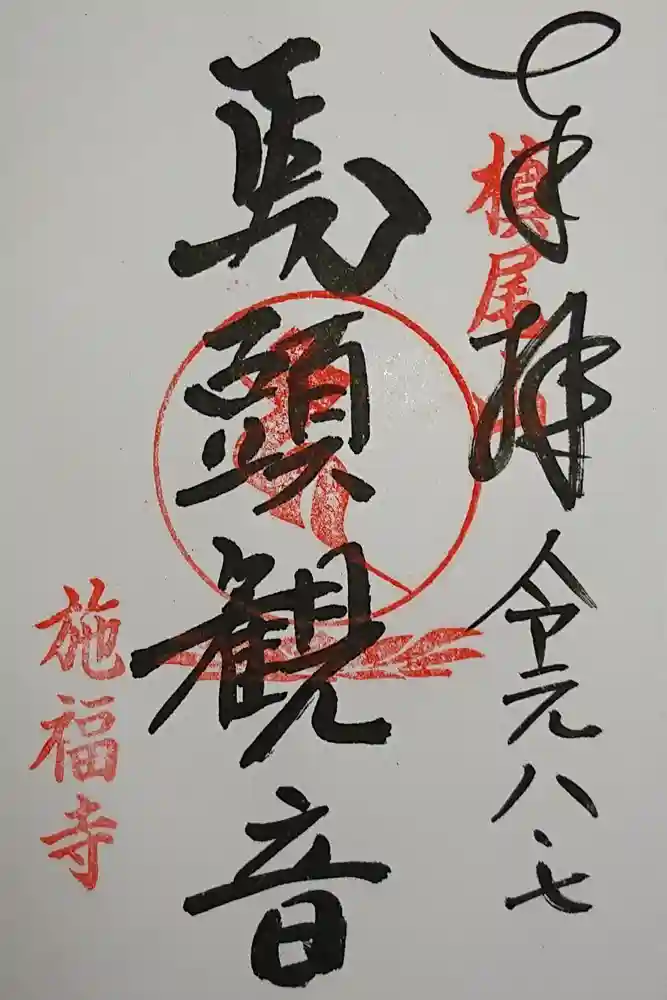 奉拝 令元 八・七
槇尾山
馬頭観音
施福寺